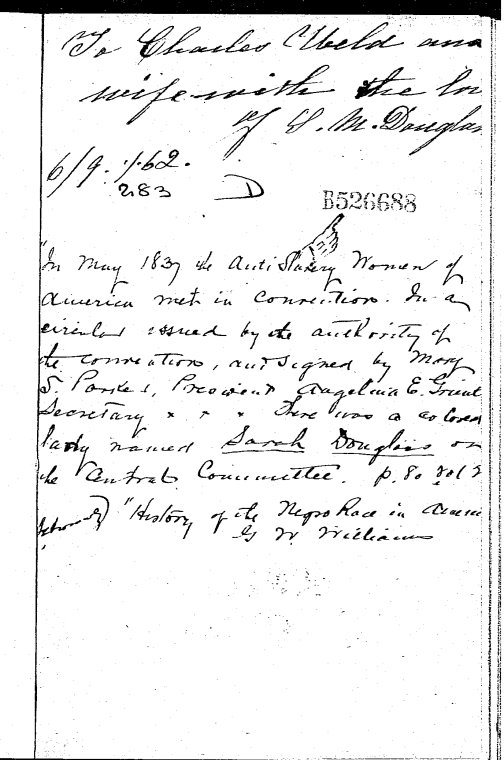 To Charles Weld and
wife with the lo
of S. M. Douglas
6/9. 1/62.
283 D
B526688
"In May 1837 the Anti Slavery Women of
America met in Convention. In a
circular issued by the authority of
the Convention, and signed by Mary
S. Parker, President Angelina E. Grimk
Secretary x x x There was a colored
lady named Sarah Douglass on
the Central Committee. p. 80 vol 2
"History of the Negro Race in Ameri
G W. Williams